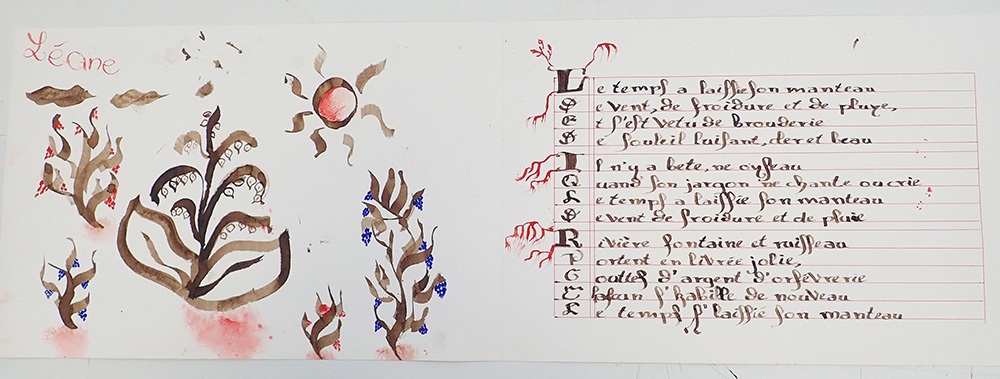 Léane
Le temps a laissie son manteau
De vent, de froidure et de pluye,
Et s'est vetu de brouderie
De souleil luisant, cler et beau
Il n'y a bete, ne oyseau
Quand son jargon ne chante ou crie
Le temps a laissie son manteau
De vent de froidure et de pluie
Rivière fontaine et ruisseau
Portent en livrée jolie,
Gouttes d'argent d'orfévrerie
Chascun s'habille de nouveau
Le temps s'laissié son manteau